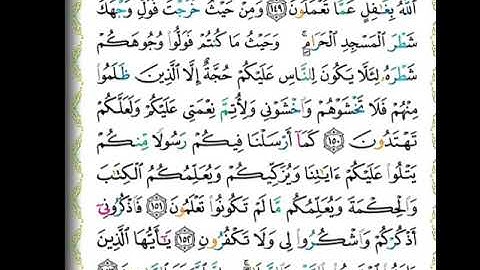 ٱللَّهُ بِغَٰفِلٍ عَمَّا تَعْمَلُونَ ١٤٩ وَمِنْ حَيْثُ خَرَجْتَ فَوَلِّ وَجْهَكَ
شَطْرَ ٱلْمَسْجِدِ ٱلْحَرَامِ ۚ وَحَيْثُ مَا كُنتُمْ فَوَلُّوا۟ وُجُوهَكُمْ
شَطْرَهُۥ لِئَلَّا يَكُونَ لِلنَّاسِ عَلَيْكُمْ حُجَّةٌ إِلَّا ٱلَّذِينَ ظَلَمُوا۟
مِنْهُمْ فَلَا تَخْشَوْهُمْ وَٱخْشَوْنِى وَلِأُتِمَّ نِعْمَتِى عَلَيْكُمْ وَلَعَلَّكُمْ
تَهْتَدُونَ ١٥٠ كَمَآ أَرْسَلْنَا فِيكُمْ رَسُولًا مِّنكُمْ
يَتْلُوا۟ عَلَيْكُمْ ءَايَٰتِنَا وَيُزَكِّيكُمْ وَيُعَلِّمُكُمُ ٱلْكِتَٰبَ
وَٱلْحِكْمَةَ وَيُعَلِّمُكُم مَّا لَمْ تَكُونُوا۟ تَعْلَمُونَ ١٥١ فَٱذْكُرُونِىٓ
أَذْكُرْكُمْ وَٱشْكُرُوا۟ لِى وَلَا تَكْفُرُونِ ١٥٢ يَٰٓأَيُّهَا ٱلَّذِينَ